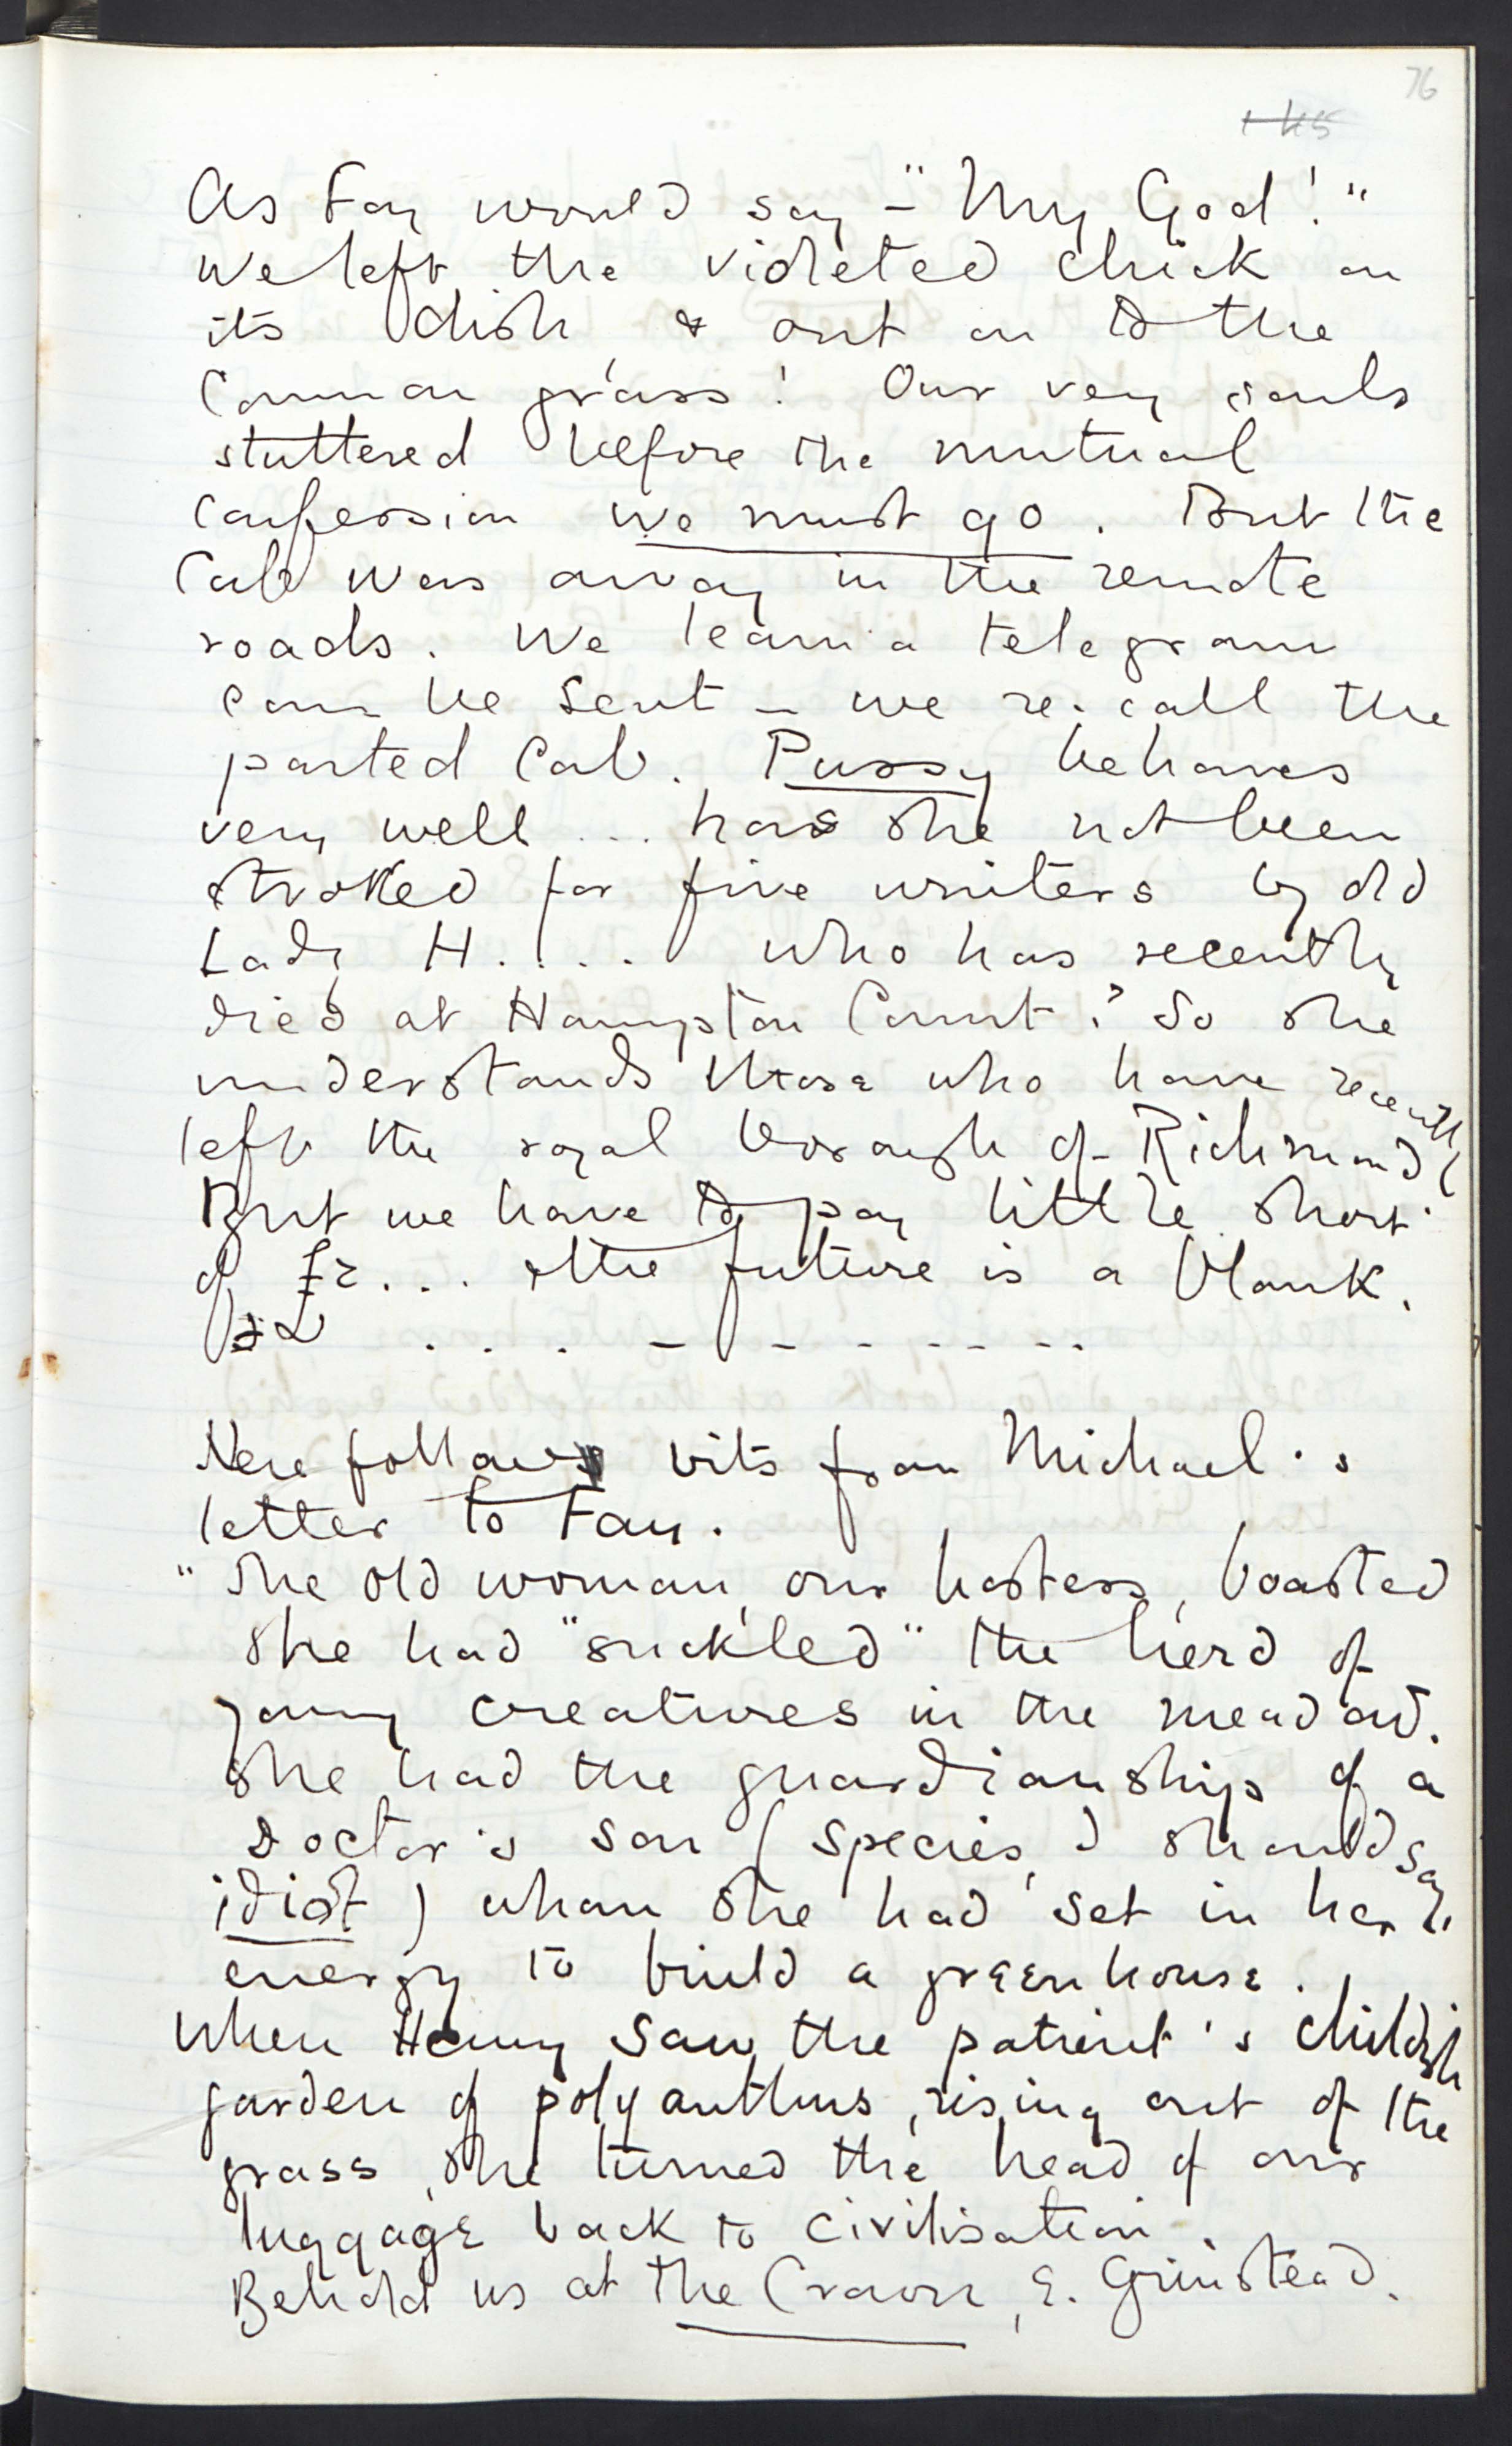 76
145
As Fay would say – "My God!"
We left the violeted chick on
its dish & out on to the
Common grass! Our very souls
stuttered before the mutual
confession we must go. But the
Cab was away in the remote
roads. We learn a telegram
can be sent – we re-call the
parted Cab. Pussy behaves
very well ... has she not been
stroked for five winters by old
Lady H.... who has recently
died at Hampton Court? So she
understands those who have recently
left the royal borough of Richmond!
But we have to pay little short
of £2... & the future is a blank.
£2 . . . – – – – – – – .
Here follows bits from Michael's
letter to Fay.
"The old woman, our hostess, boasted
She had "suckled" the herd of
young creatures in the meadow.
She had the guardianship of a
Doctor's son (species, I should say,
idiot) whom she had set in her
energy to build a greenhouse.
When Henny saw the patient's childish
garden of polyanthus, rising out of the
grass, she turned the head of our
luggage back to civilisation.
Behold us at The Crown, E. Grinstead.